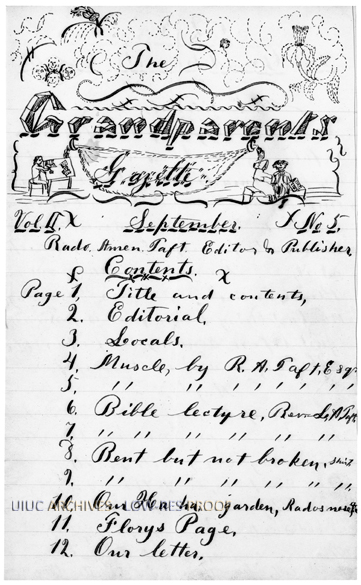 The
Grandparents
Gazette
Vol. II. X September. X No 5.
Rado. Amen. Taft. Editor & Publisher
Contents. X
Page 1. Title and contents,
2. Editorial,
3. Locals.
4. Muscle, by R. A. Taft, Esqr
5. ,, ,, ,, ,, ,, ,,
6. Bible lectyre,
7. ,, ,, ,, ,, ,, ,,
8. Bent but not broken,
9. ,, ,, ,, ,, ,,
10. Our garden, Rados
11. Florys Page,
12. Our letter,
UIUC ARCHIVES LOW RES GOOD